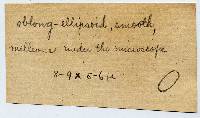 oblong-ellipsoid, smooth,
under the microscope
8-9 x 5-6µ